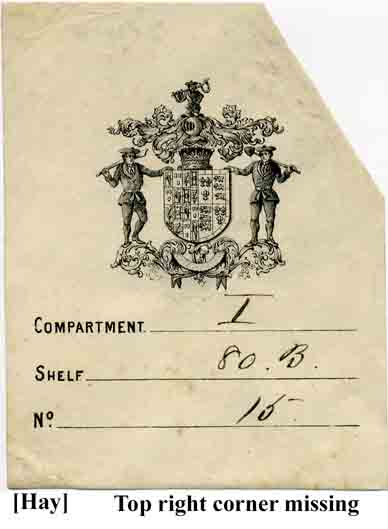 COMPARTMENT. I
SHELF 80.B.
Nº. 15
[Hay] Top right corner missing